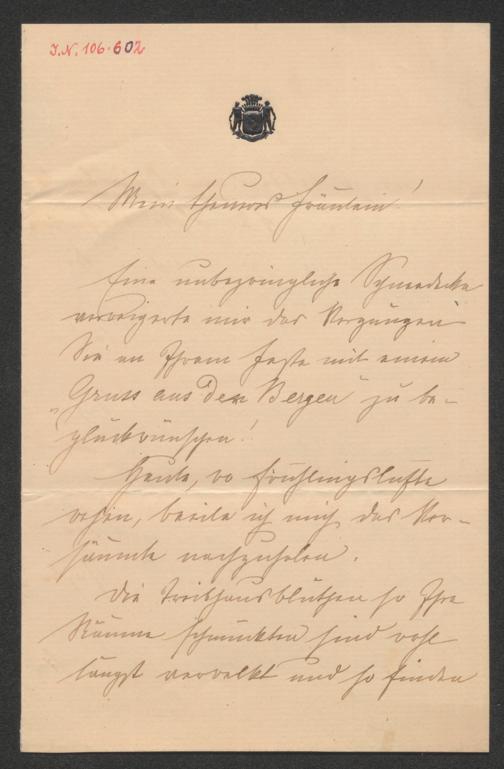 J.N. 106.602
Mein theures Fräulein!
Eine unbezwingliche Schneedecke
verweigerte mir das Vergnügen
Sie an Ihrem Feste mit einem
„Gruss aus den Bergen" zu be-
glückwünschen!
Heute, wo Frühlingslüfte
wehen, beeile ich mich das Ver-
säumte nachzuholen.
Die Treibhausblüthen so Ihre
Räume schmückten sind wohl
längst verwelkt und so finden